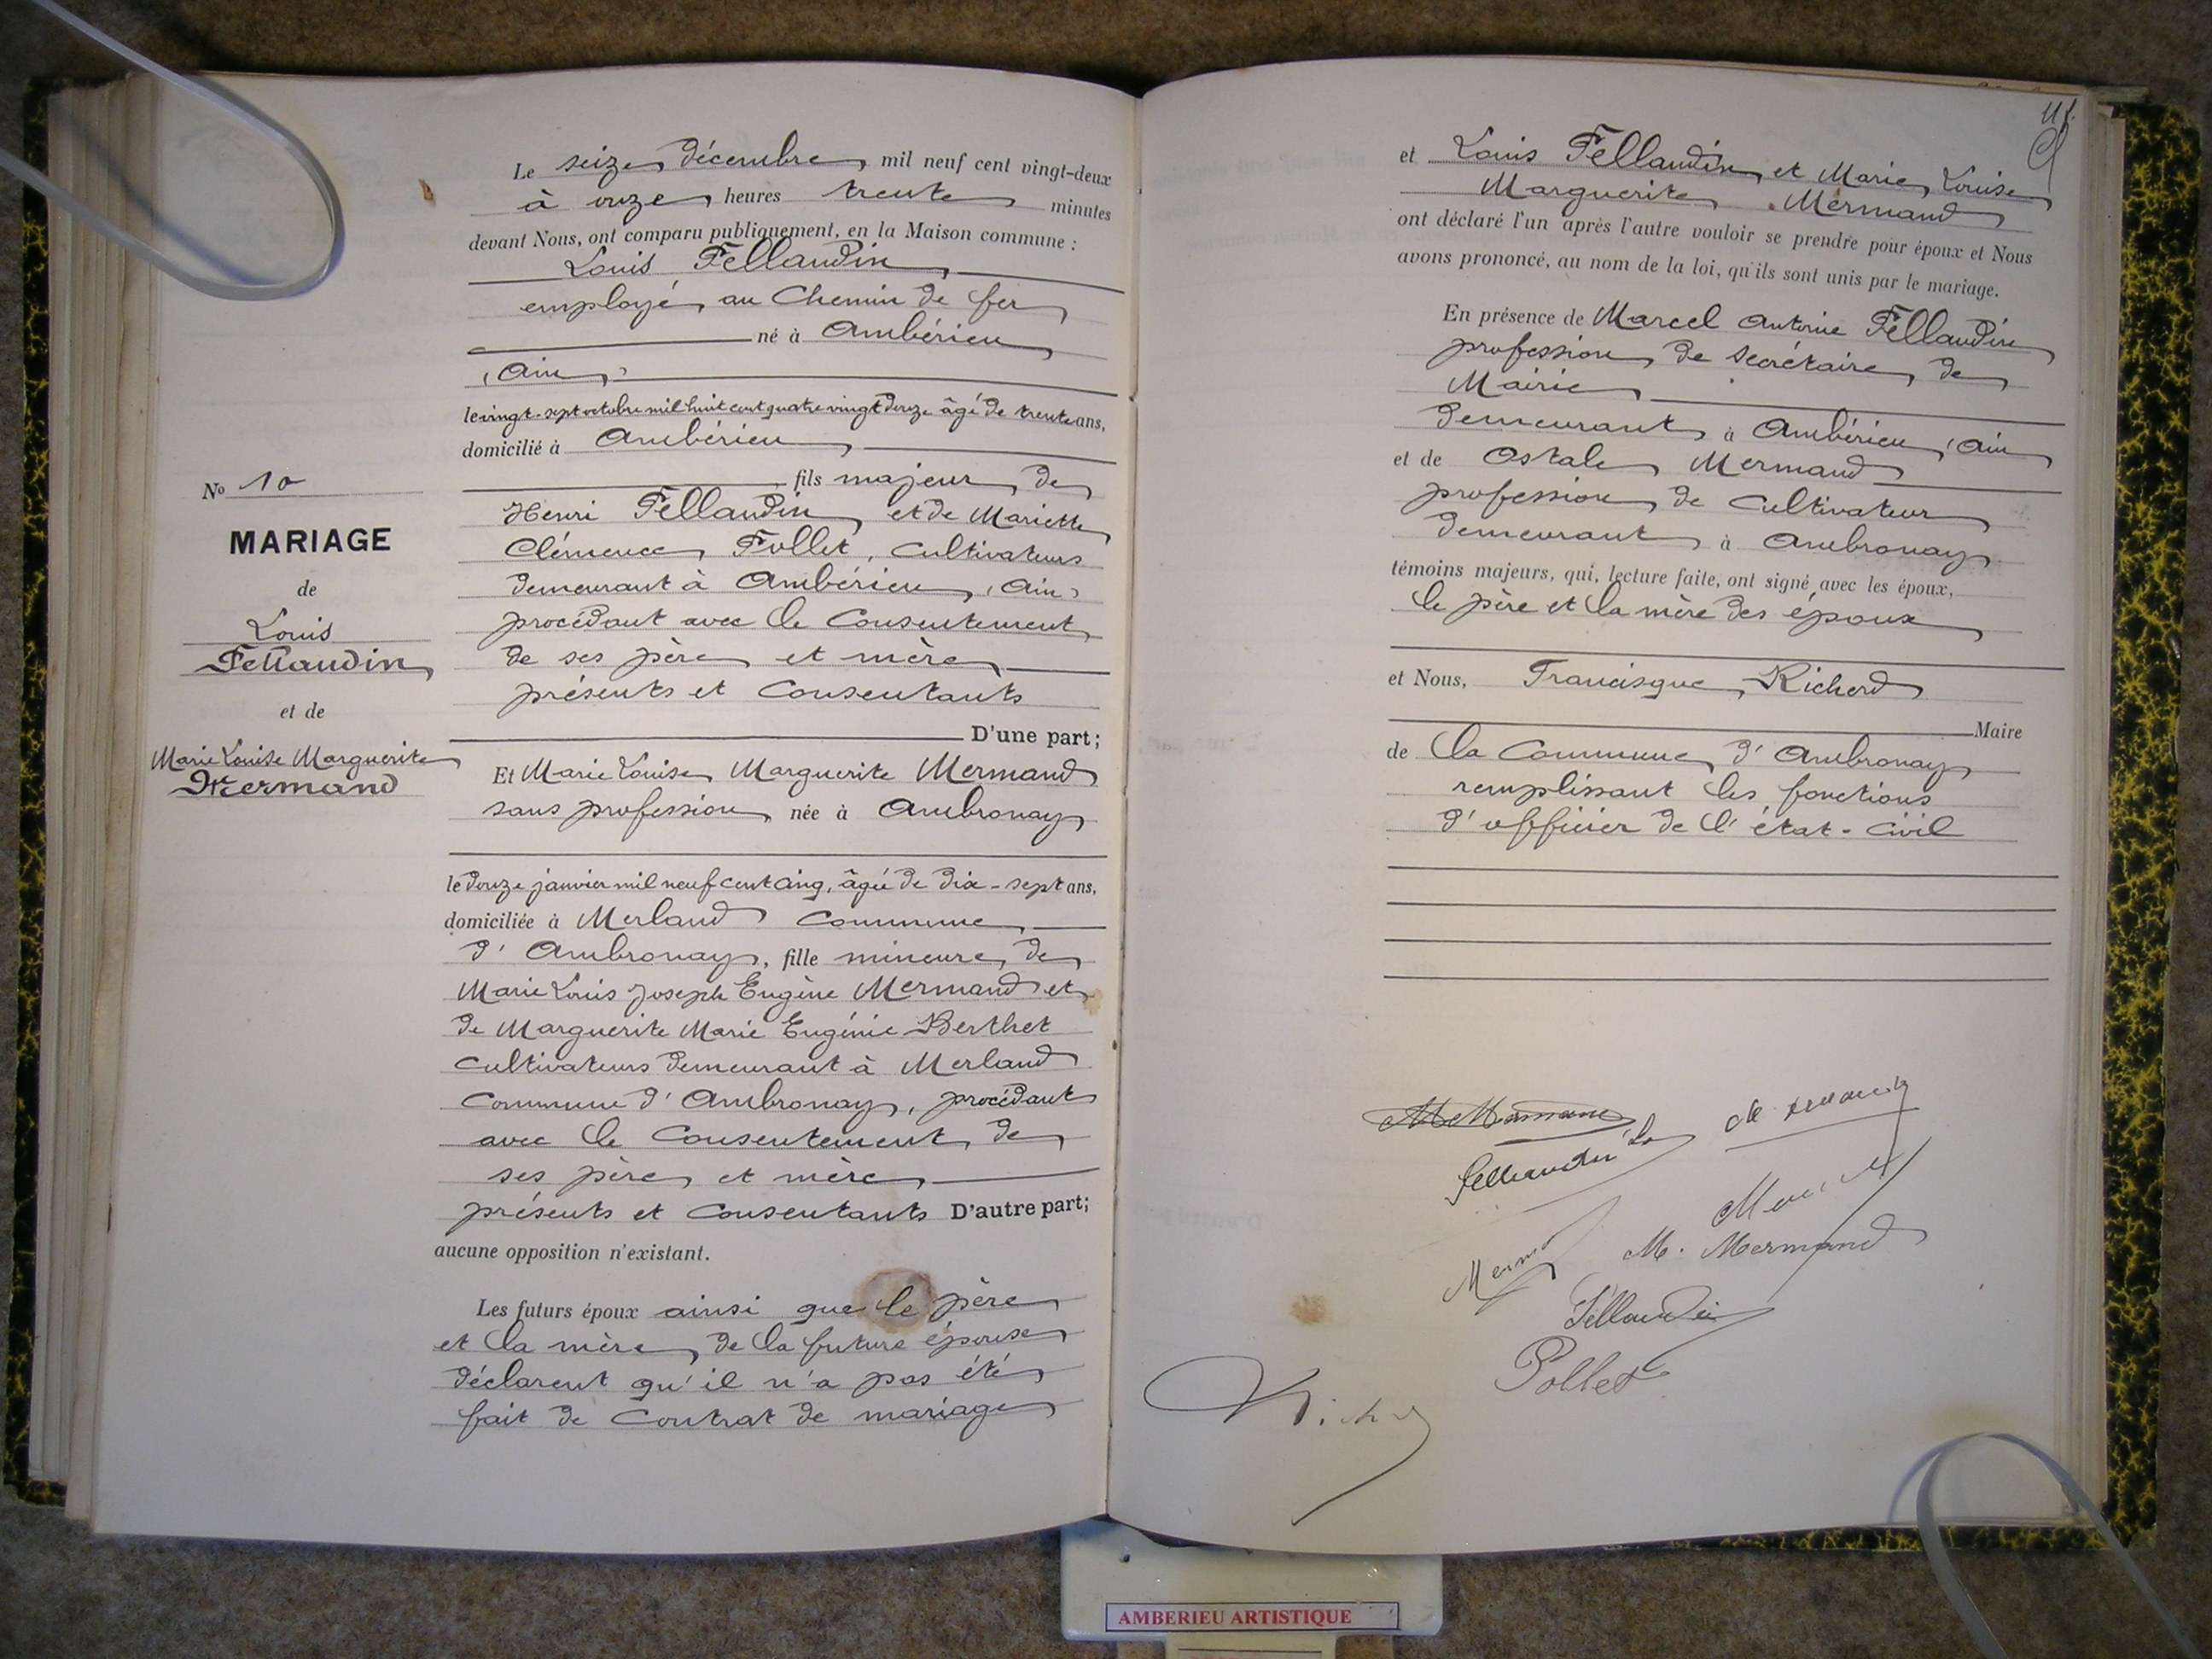 Le seize décembre mil neuf cent vingt-deux
à onze heures trente minutes
devant Nous, ont comparu publiquement, en la Maison commune :
Louis Fellaudin
employé au Chemin de fer
né à Ambérieu
(Ain)
le vingt-sept octobre mil huit cent quatre vingt douze âgé de trente ans,
domicilié à Ambérieu
fils majeur de
Henri Fellaudin et de Mariette
Clémence Follet, cultivateurs
demeurant à Ambérieu (Ain)
procédant avec le Consentement
de ses père et mère
présents et Consentants
D'une part;
Et Marie Louise Marguerite Mermand
sans profession née à Ambronay
le douze janvier mil neuf cent cinq, âgée de dix-sept ans,
domiciliée à Merland Commune
d'Ambronay, fille mineure de
Marie Louis Joseph Eugène Mermand et
de Marguerite Marie Eugénie Berthet
cultivateurs demeurant à Merland
Commune d'Ambronay, procédant
avec le Consentement de
ses père et mère
présents et Consentants D'autre part;
aucune opposition n'existant.
Les futurs époux ainsi que le père
et la mère de la future épouse
déclarent qu'il n'a pas été
fait de Contrat de mariage
No 10
MARIAGE
de
Louis
Fellaudin
et de
Marie Louise Marguerite
Mermand
et Louis Fellaudin et Marie Louise
Marguerite Mermand
ont déclaré l'un après l'autre vouloir se prendre pour époux et Nous
avons prononcé, au nom de la loi, qu'ils sont unis par le mariage.
En présence de Marcel Antoine Fellaudin
profession de secrétaire de
Mairie
demeurant à Ambérieu (Ain
et de Ostale Mermand
profession de Cultivateur
demeurant à Ambronay
témoins majeurs, qui, lecture faite, ont signé avec les époux,
le père et la mère des époux
et Nous, Francisque Richerd
Maire
de la Commune d'Ambronay
remplissant les fonctions
d'officier de l'état-Civil
Fellaudin
M. Mermand
Fellaudin
Pollet
AMBERIEU ARTISTIQUE